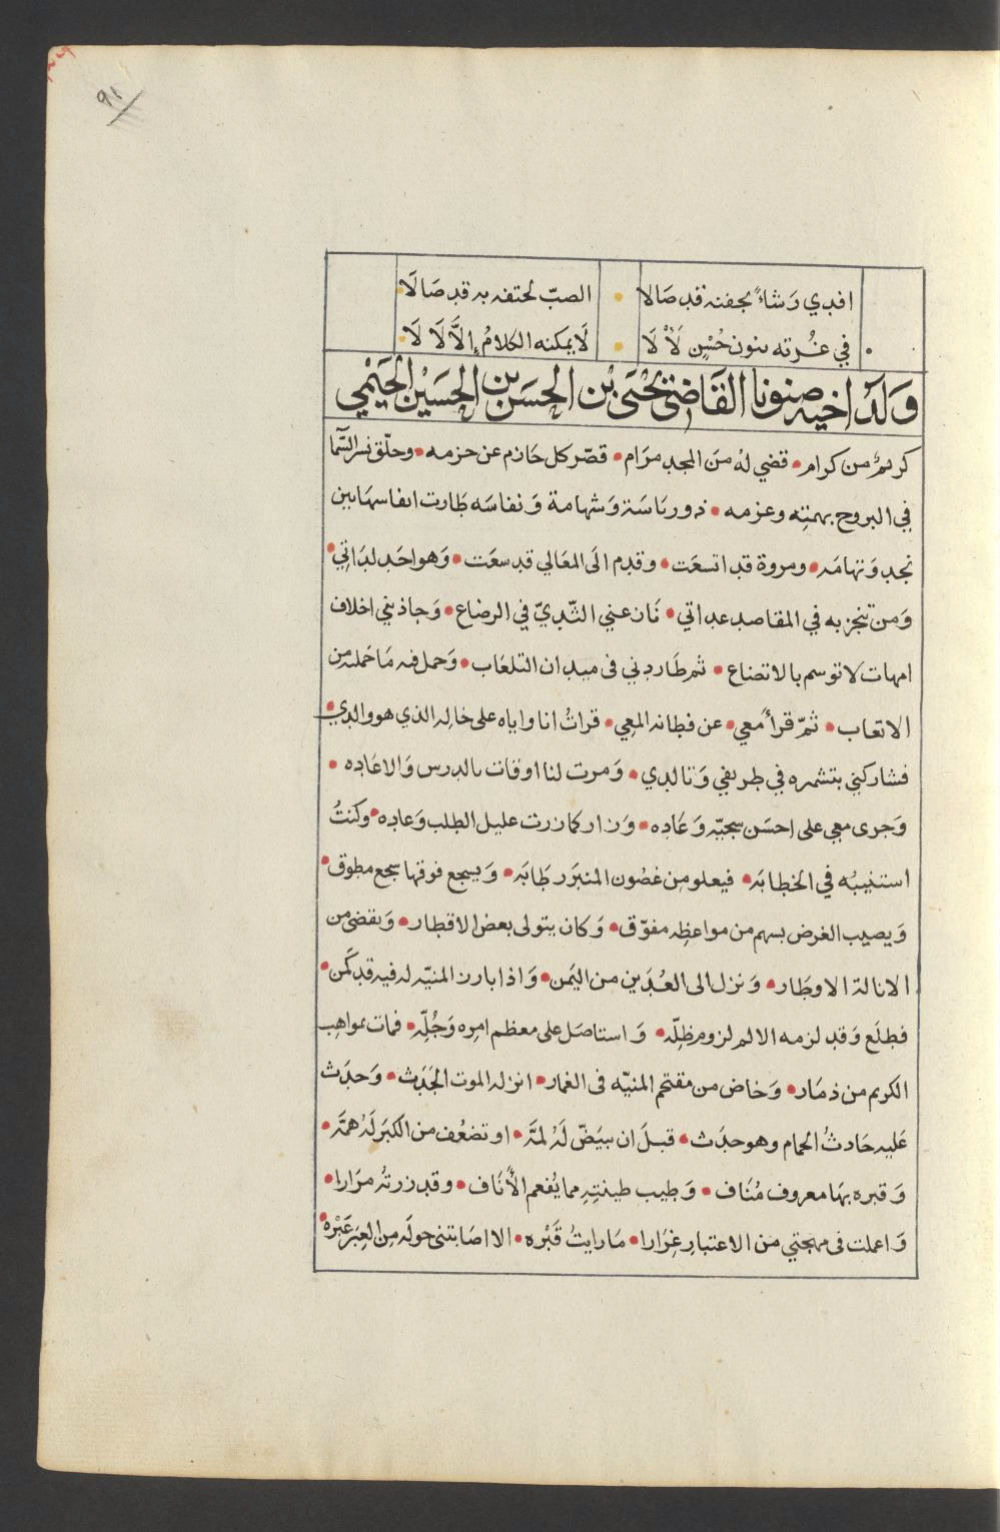 ٩١
افدي وَشاءً بجفنه قد صَالا • الصبّ لحتفه به قد صَالَا
في غُرته بنون حُسْنٍ لَاْ لَا • لَا يمكنه الكلامُ إلَّا لَا لَا
وَلَدُ اخيه صنونا القَاضي يَحْيَى بْن الحسَن بن الحسَيْن الحَيْمي
كريمٌ من كرام • قضي لهُ منَ المجد مرَام • قصّر كل حَازم عن حزمه • وحلّق نسر السّما
في البروج بهمتِه وعزمه • ذو رئاسَة وَشهامة وَنفاسَه طَارت انفاسهَا بين
نجد وَتهامَه • ومروة قد اتسعَت • وقدم الَى المعَالي قد سعَت • وَهو احَد لدَاتي •
وَمن تنجز به في المقاصد عداتي • نَازعني الثّديّ في الرضاع • وَجاذبني اخلاف
امهات لا توسم بالاتضاع • ثم طَاردني في ميدان التلعَاب • وَحمل فيه مَا حَملهُ من
الاتعاب • ثمّ قرأ مَعي • عن فطانه المعي • قراتُ انا واياه على خالِه الذي هو والدي •
فشاركني بتشمره في طريفي وَتالدي • وَمرت لنا اوقات بالدرس وَالاعَاده •
وَجرى معي على احسَن سجيّه وَعَاده • وَزار كما زرت عليل الطلب وَعاده • وكنتُ
استنيبُه في الخطابَه • فيعلو من غصُون المنبَر رطَابَه • وَيسجع فوقها سجع مطوق •
وَيصيب الغرض بسهم من مواعظه مفوّق • وَكان يتولى بعض الاقطار • وَيقضي من
الانالة الاوطَار • وَنزل الى العُدَين من اليَمن • وَاذا بارز المنيّه له فيه قد كَمن •
فطلَع وَقد لزمه الالم لزوم ظِلّه • وَاستاصَل على معظم امره وَجُلّه • فمات بمواهِب
الكريم من ذمَار • وَخاض من مقتحم المنيّه في الغمار • انزله الموت الجَدَث • وَحدَث
عَليه حَادثُ الحمام وهو حدَث • قبلَ ان بيَضّ لَهُ لمَّه • او تضعُف من الكبَر لَهُ همَّه •
وَقبره بهَا معروف مُنَاف • وَطيب طينتِهِ مما يُفعم الْأنَاف • وقد زرتهُ مرَارا •
وَاعملت في مهجتي من الاعتبارِ غِرَارا • مَا رايتُ قَبْره • الا اصَابتني حولَه من العِبَر عَبْرة •